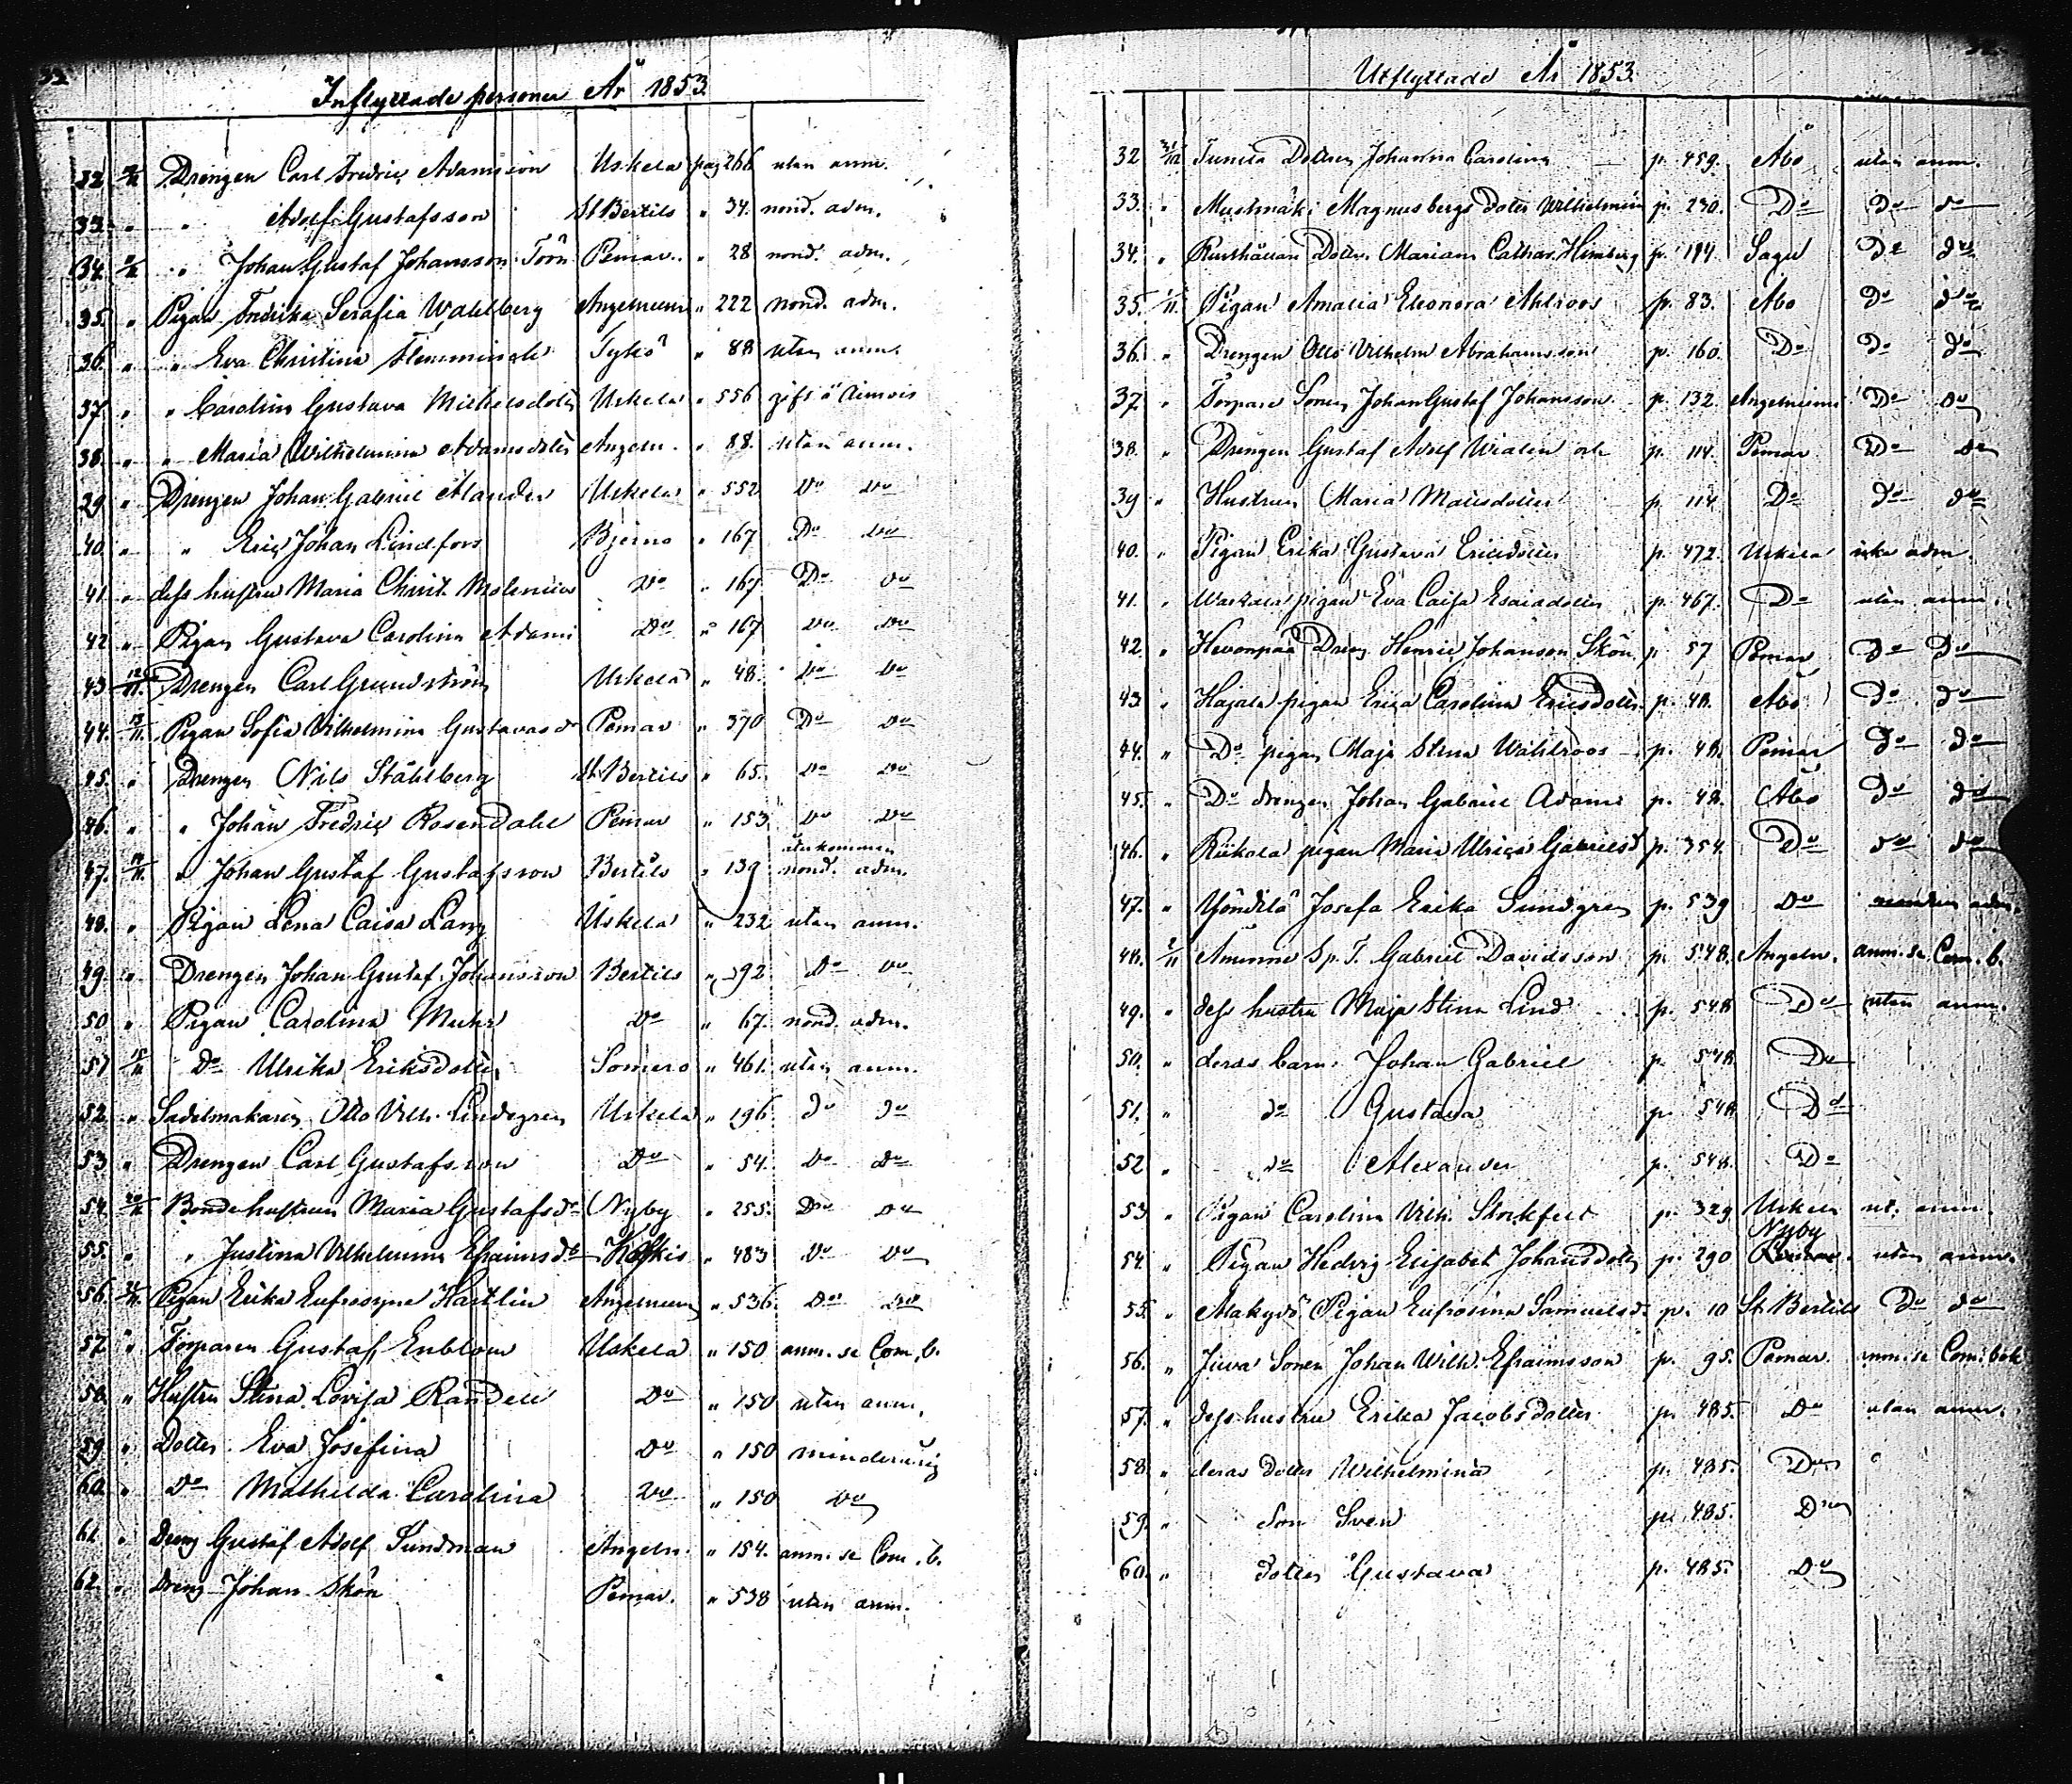 Inflyttade personer År 1853.
32. Drengen Carl Fredric Adamsson Uskela pag 266 utan anm.
33. " " Adolf Gustafsson St Bertils " 34. nond. adm.
34. " Johan Gustaf Johansson Pemar. " 28 nond. adm.
35. " Pigan Fredrika Serafia Wahlberg Angelniemi " 222 nond. adm.
36. " " Eva Christina Tykö " 88 utan anm.
37. " " Carolina Gustava Michelsdoter Uskela " 556
38. " " Maria Wilhelmina Adamsdoter Angeln. " 88. utan anm.
39. " Drengen Johan Gabriel Alander Uskela " 552 Do Do
40. " " Eric Johan Lindfors Bjerno " 167 Do Do
41. " dess hustru Maria Christ. Molenius Do " 167 Do Do
42. " Pigan Gustava Carolina Adami Do " 167 Do Do
43. 12/11. Drengen Carl Grundström Uskela " 48. Do Do
44. 13/11. Pigan Sofia Vilhelmina Gustavasd. Pemar " 370 Do Do
45. " Drengen Nils Ståhlberg St. Bertils " 65. Do Do
46. " " Johan Fredric Rosendahl Pemar " 153 Do Do
återkommen
47. 14/11. " Johan Gustaf Gustafsson Bertils " 139 nond. adm.
48. " Pigan Lena Caisa Lang Uskela " 232 utan anm.
49. " Drengen Johan Gustaf Johansson Bertils " 92 Do Do
50 " Pigan Carolina Muhr Do " 67. nond. adm.
51 15/11 Do Ulrika Eriksdoter Somero " 461. utan anm.
52. " Sadelmakaren Otto Vilh. Lindegren Uskela " 196 do do
53 " Drengen Carl Gustafsson Do " 54. Do Do
54. 20/11 Bondehustrun Maria Gustafsdr Nyby " 255. Do Do
55. " " Justina Vilhelmina Efraimsdr Koskis " 483 Do Do
56. Pigan Erika Eufrosyne Hartlin Angelniemi " 536. Do Do
57. " Torparen Gustaf Enblom Uskela " 150 anm. se Com. b.
58. " Hustru Stina Lovisa Randell Do " 150 utan anm.
59. " Dotter Eva Josefina Do " 150 minderårig
60. " Do Mathilda Carolina Do " 150 Do
61. " Dreng Gustaf Adolf Sundman Angeln. " 154. anm. se Com. b.
62. " Dreng Johan Skön Pemar. " 538 utan anm.
Utflyttade År 1853.
32 Dottren Johanna Carolina p. 459. Åbo utan anm.
33. " Mustmäki Magnusbergs doter Wilhelmina p. 230. Do Do do
34. " Dottern Mariana Cathar. p. 194. Sagu Do do
35. Pigan Amalia Eleonora Ahlroos p. 83. Åbo Do do
36. " Drengen Otto Vilhelm Abrahamsson p. 160. Do Do do
37. " Torpare Sonen Johan Gustaf Johansson p. 132. Angelniemi Do Do
38. " Drengen Gustaf Adolf Wialen och p. 114. Pemar Do Do
39 " Hustrun Maria Matisdotter p. 114 Do do do
40. " Pigan Erika Gustava Ericsdoter p. 472. Uskela icke adm.
41. " pigan Eva Caisa Esaiadoter p. 467. Do utan anm.
42. " Hevonpää Dreng Henric Johanson Skön p. 57 Pemar Do Do
43. " Hajala pigan Erica Carolina Ericsdoter p. 48. Åbo Do do
44. " Do pigan Maja Stina Wahlroos p. 48. Pemar Do do
45. " Do drengen Johan Gabriel Adami p. 48. Åbo Do do
46. " Riikola pigan Maria Ulrica Gabrielsd. p. 354. Do do do
47. " Yöndilä Josefa Erika Sundgren p. 539 Do adm.
48. 2/11 Åminne Sp. T. Gabriel Davidsson p. 548. Angeln. anm. se Com. b.
49. " dess hustru Maja Stina Lind p. 548 Do utan anm.
50. " deras barn Johan Gabriel p. 548 Do
51. " do Gustava p. 548 Do
52 " do Alexander p. 548. Do
53 " Pigan Carolina Vilh. Stockfelt p. 329 Uskela ut. anm.
Nyby
54. " Pigan Hedvig Elisabet Johansdoter p. 290 utan anm.
55. " Pigan Eufrosina Samuelsd. p. 10 St. Bertils Do do
56. " Juva Sonen Johan Wilh. Efraimsson p. 95. Pemar. anm. se Com. bok
57. " dess hustru Erika Jacobsdotter p. 485. Do utan anm.
58. " deras dotter Wilhelmina p. 485. Do
59. " Son Sven p. 485. Do
60. " dotter Gustava p. 485. Do